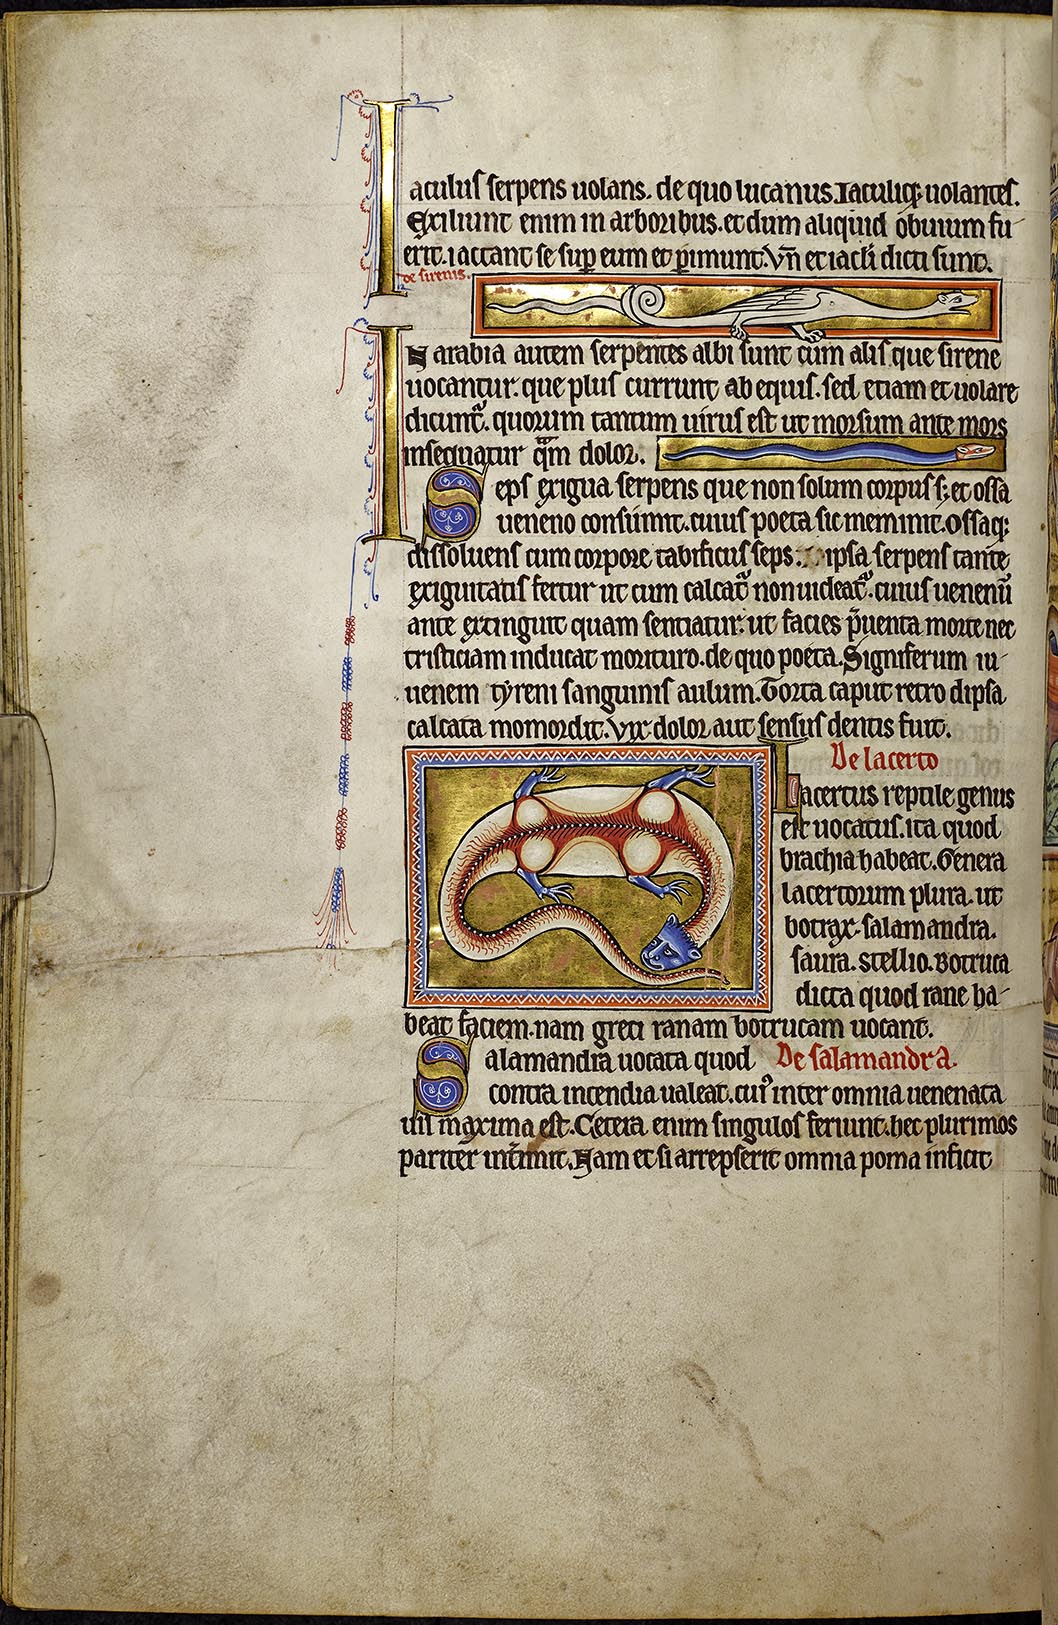 Iaculus serpens uolans. de quo lucanus. Iaculiq; uolantes.
Exiliunt enim in arboribus. et dum aliquid obuium fu
erit. iactant se sup eum et pimunt. Vn̄ et iacli dicti sunt.
de sirenis.
IN arabia autem serpentes albi sunt cum alis que sirene
uocantur. que plus currunt ab equis. sed etiam et uolare
dicunt̃. quorum tantum uirus est ut morsum ante mors
insequatur qm̃ dolor.
Seps exigua serpens que non solum corpus s; et ossa
ueneno consumit. cuius poeta sic meminit. Ossaq;
dissoluens cum corpore tabificus seps. ipsa serpens tante
exiguitatis fertur ut cum calcat̃ non uideat̃. cuius uenenū
ante extinguit quam sentiatur. ut facies p̃uenta morte nec
tristiciam inducat morituro. de quo poeta. Signiferum iu
uenem tyreni sanguinis aulum. Torta caput retro dipsa
calcata momordit. Vix dolor aut sensus dentis fuit.
De lacerto
Lacertus reptile genus
est uocatus. ita quod
brachia habeat. Genera
lacertorum plura. ut
botrax. salamandra.
saura. stellio. Botruca
dicta quod rane ha
beat faciem. nam greci ranam botrucam uocant.
Salamandra uocata quod De salamandra.
contra incendia ualeat. cui᾽ inter omnia uenenata
uis maxima est. Cetera enim singulos feriunt. hec plurimos
pariter int̃imit. Nam et si arrepserit omnia poma inficit